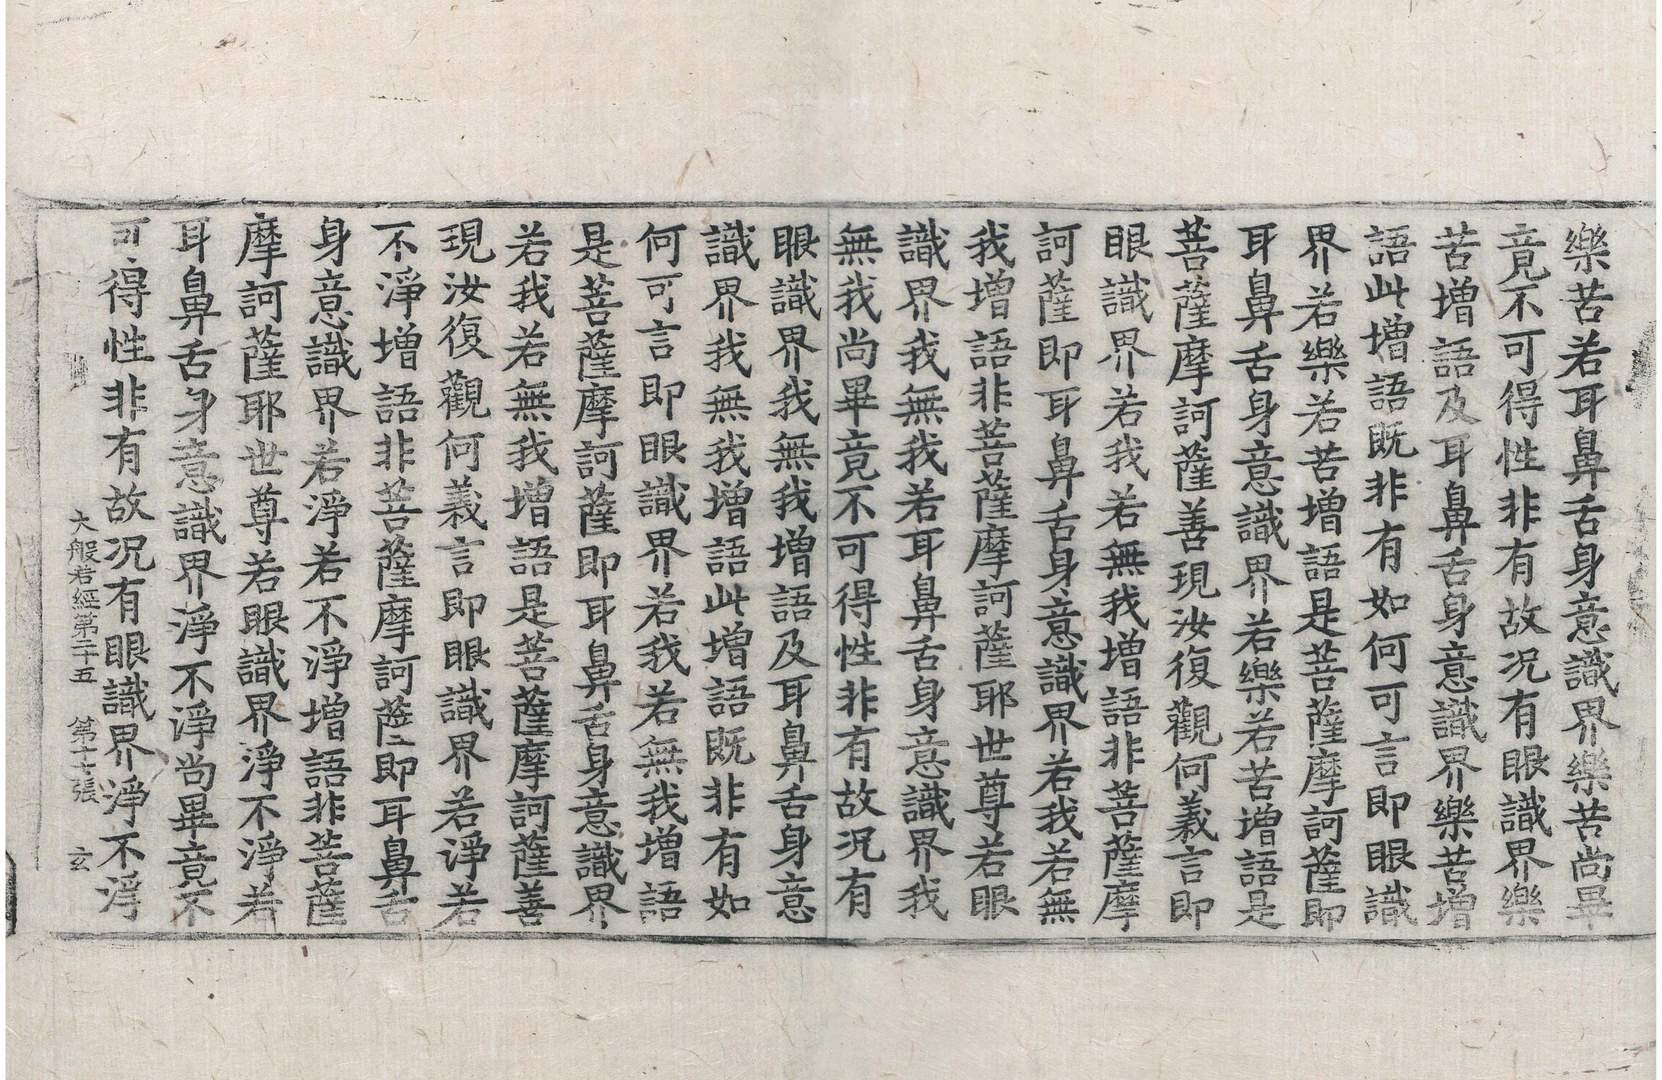 樂苦若耳鼻舌身意識界樂苦尚畢
竟不可得性非有故况有眼識界樂
苦增語及耳鼻舌身意識界樂苦增
語此增語既非有如何可言即眼識
界若樂若苦增語是菩薩摩訶薩即
耳鼻舌身意識界若樂若苦增語是
菩薩摩訶薩善現汝復觀何義言即
眼識界若我若無我增語非菩薩摩
訶薩即耳鼻舌身意識界若我若無
我增語非菩薩摩訶薩耶世尊若眼
識界我無我若耳鼻舌身意識界我
無我尚畢竟不可得性非有故况有
眼識界我無我增語及耳鼻舌身意
識界我無我增語此增語既非有如
何可言即眼識界若我若無我增語
是菩薩摩訶薩即耳鼻舌身意識界
若我若無我增語是菩薩摩訶薩善
現汝復觀何義言即眼識界若淨若
不淨增語非菩薩摩訶薩即耳鼻舌
身意識界若淨若不淨增語非菩薩
摩訶薩耶世尊若眼識界淨不淨若
耳鼻舌身意識界淨不淨尚畢竟不
可得性非有故况有眼識界淨不淨
大般若經第二十五 第十六張 玄